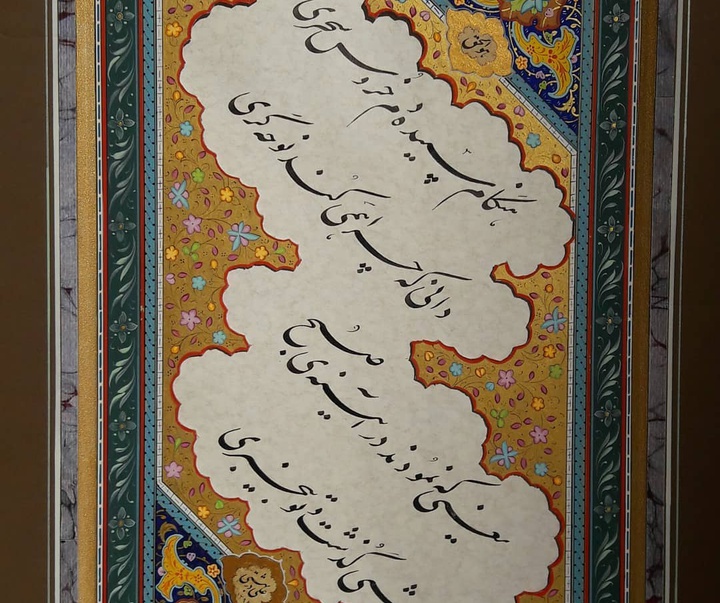 هو الحق
هنگام سپیده دم خروس سحری
دانی که چرا همی کند نوحه گری
یعنی که نمودند در آیینه ی صبح
شبی گذشت و تو بیخبری